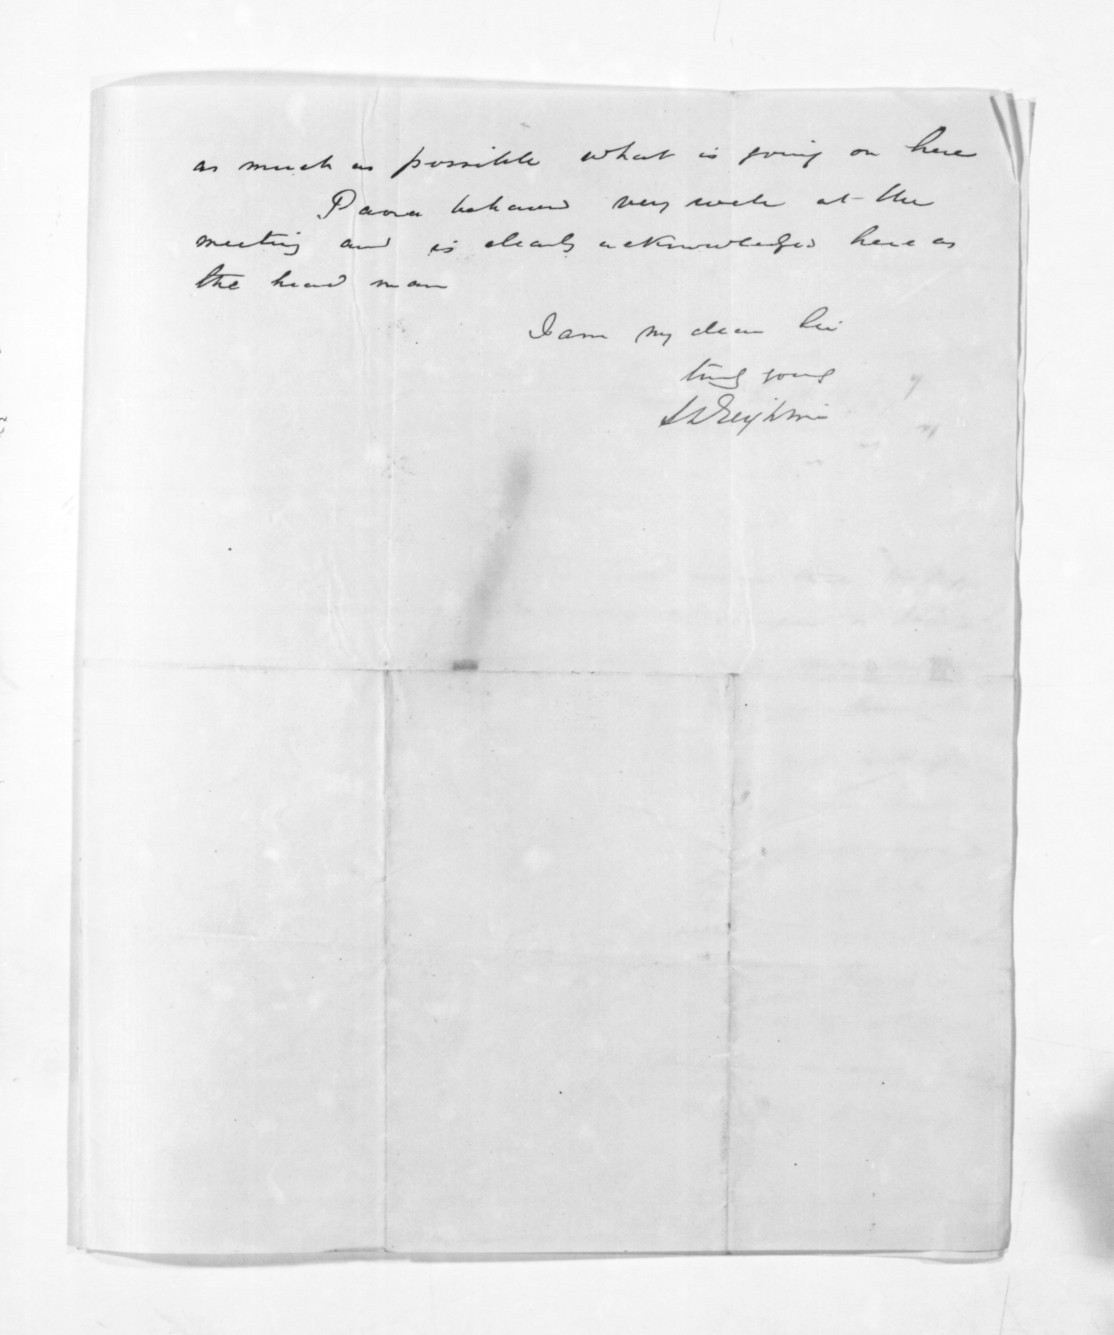 as much as possible what is going on here
Paora behaved very well at the
meeting and is clearly acknowledged here as
the head man
I am my dear Sir
truly yours